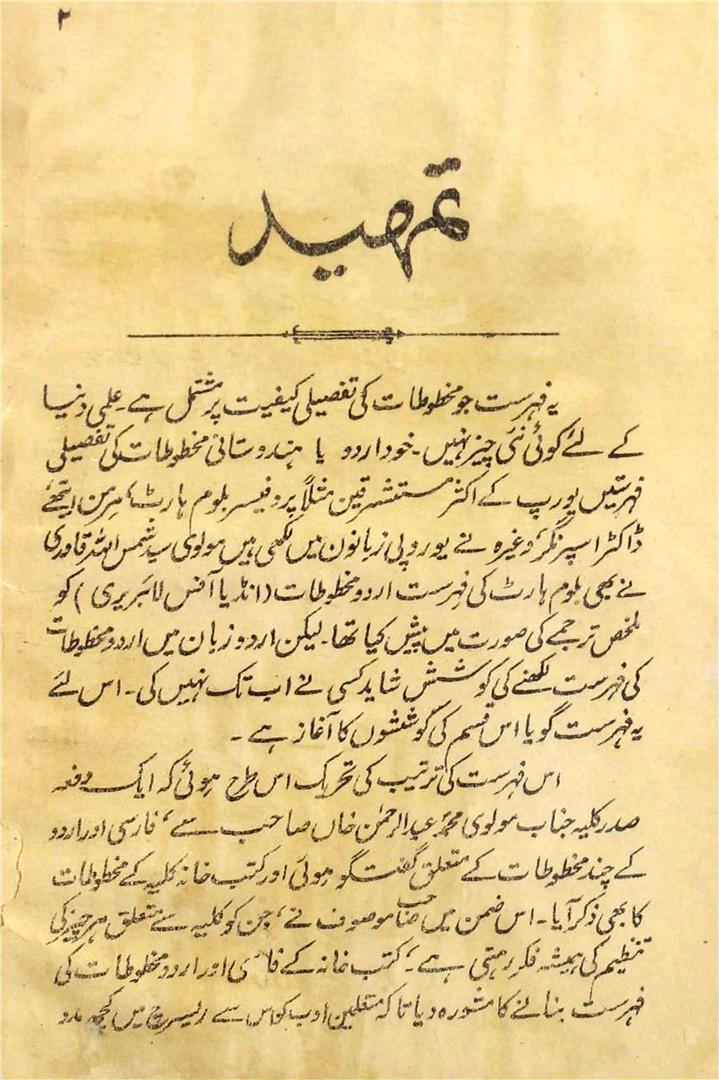 ۲
تمہید
یہ فہرست جو مخطوطات کی تفصیلی کیفیت پر مشتمل ہے۔ علمی دنیا
کے لئے کوئی نئی چیز نہیں۔ خود اردو یا ہندوستانی مخطوطات کی تفصیلی
فہرستیں یورپ کے اکثر مستشرقین مثلاً پروفیسر بلوم ہارٹ‘ ہرمن ایتھے
ڈاکٹر اسپرنگر‘ وغیرہ نے یوروپی زبانوں میں لکھی ہیں مولوی سید شمس اللہ قادری
نے بھی بلوم ہارٹ کی فہرست اردو مخطوطات (انڈیا آفس لائبریری) کو
ملخص ترجمے کی صورت میں پیش کیا تھا۔ لیکن اردو زبان میں اردو مخطوطات
کی فہرست لکھنے کی کوشش شاید کسی نے اب تک نہیں کی۔ اس لئے
یہ فہرست گویا اس قسم کی کوششوں کا آغاز ہے ۔
اس فہرست کی ترتیب کی تحریک اس طرح ہوئی کہ ایک دفعہ
صدر کلیہ جناب مولوی محمد عبدالرحمٰن خاں صاحب سے‘ فارسی اور اردو
کے چند مخطوطات کے متعلق گفتگو ہوئی اور کتب خانہ کلیہ کے مخطوطات
کا بھی ذکر آیا۔ اس ضمن میں صاحب موصوف نے‘ جن کو کلیہ سے متعلق ہر چیز کی
تنظیم کی ہمیشہ فکر رہتی ہے۔‘ کتب خانہ کے فارسی اور اردو مخطوطات کی
فہرست بنانے کا مشورہ دیا تاکہ متعلمین ادب کو اس سے ریسرچ میں کچھ مدد